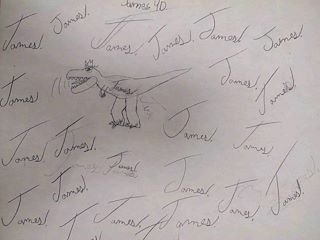 James 4D
James! James! James! James! James! James!
James! James! James! James!
James! James!
James! James! James!
James! James! James! James! James!
James! James! James! James!